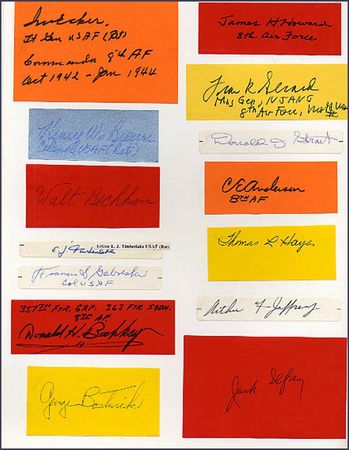 Ira Eaker.
Lt Gen USAF (Ret)
Commander 8th AF
Oct 1942 - Jan 1944
Colonel USAF (Ret)
Walt Beckham
E. J. Timberlake USAF (Ret)
E J Timberlake
Francis S Gabreski
Col USAF
357TH FTR. GRP. 363 FTR. SQDN.
8TH AF
Donald H. Bochkay
George Bostwick
James H. Howard
8th Air Force
Maj Gen, NJANG
8th Air Force, World War II
Donald J Strait
C E Anderson
8TH AF
Thomas L Hayes
Arthur F Jeffrey
Jack Ilfrey